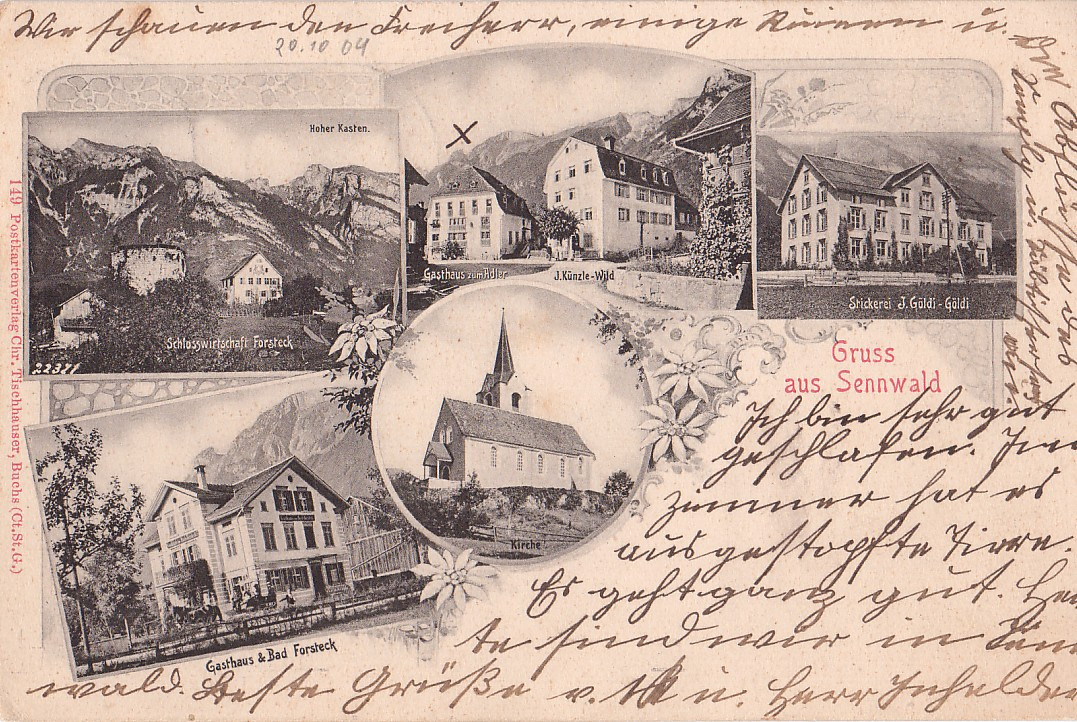 Wir schauen den Freiherr, einige Ruinen u.
20.10 04
Hoher Kasten.
Schlosswirtschaft Forsteck
22371
Gasthaus zum Adler
J. Künzle-Wild
Stickerei J. Göldi-Göldi
149 Postkartenverlag Chr. Tischhauser, Buchs (Ct. St. G.)
Gruss
aus Sennwald
Kirche
Gasthaus & Bad Forsteck
Ich bin sehr gut
geschlafen. Im
zimmer hat es
ausgestopfte Tirre.
Es geht ganz gut. Heu
te sind wir in Senn
wald. Beste Grüße v. u. Herr Inhelder